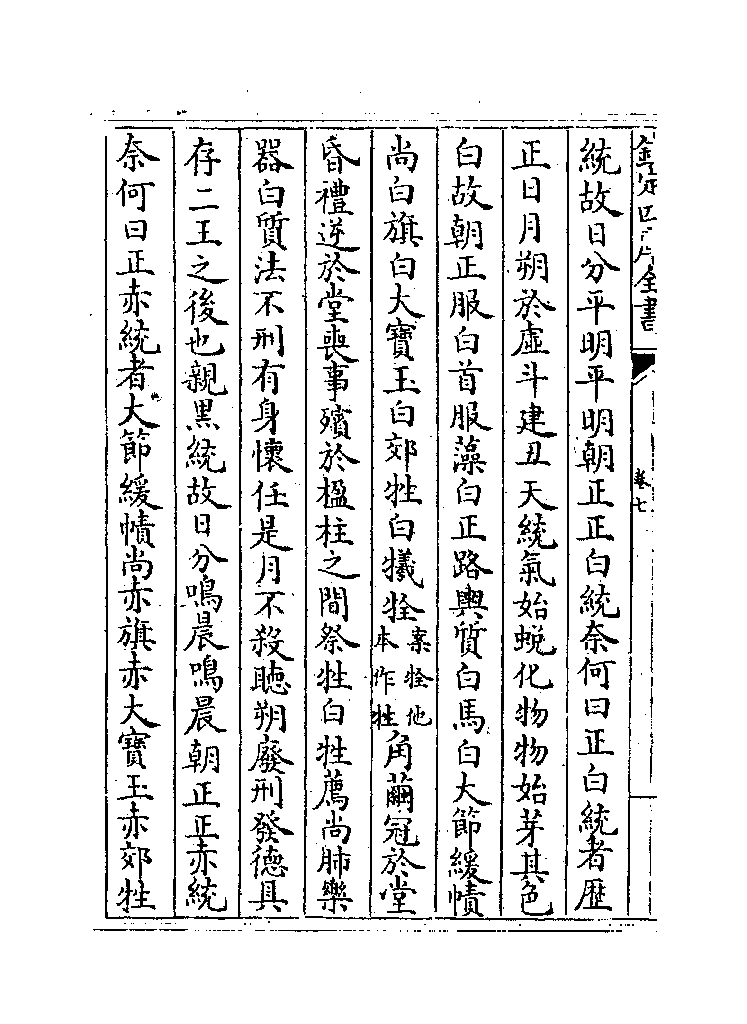 欽定四庫全書
卷七
統故日分平明平明朝正正白統奈何曰正白統者歴
正日月朔於虛斗建丑天統氣始蜕化物物始芽其色
白故朝正服白首服藻白正路輿質白馬白大節綬幘
尚白旗白大寳玉白郊牲白犧牷案牷他本作牲角繭冠於堂
昏禮逆於堂喪事殯於楹柱之間祭牲白牲薦尚肺樂
器白質法不刑有身懷任是月不殺聽朔廢刑發徳具
存二王之後也親黒統故日分鳴晨鳴晨朝正正赤統
奈何曰正赤統者大節緩幘尚赤旗赤大寳玉赤郊牲